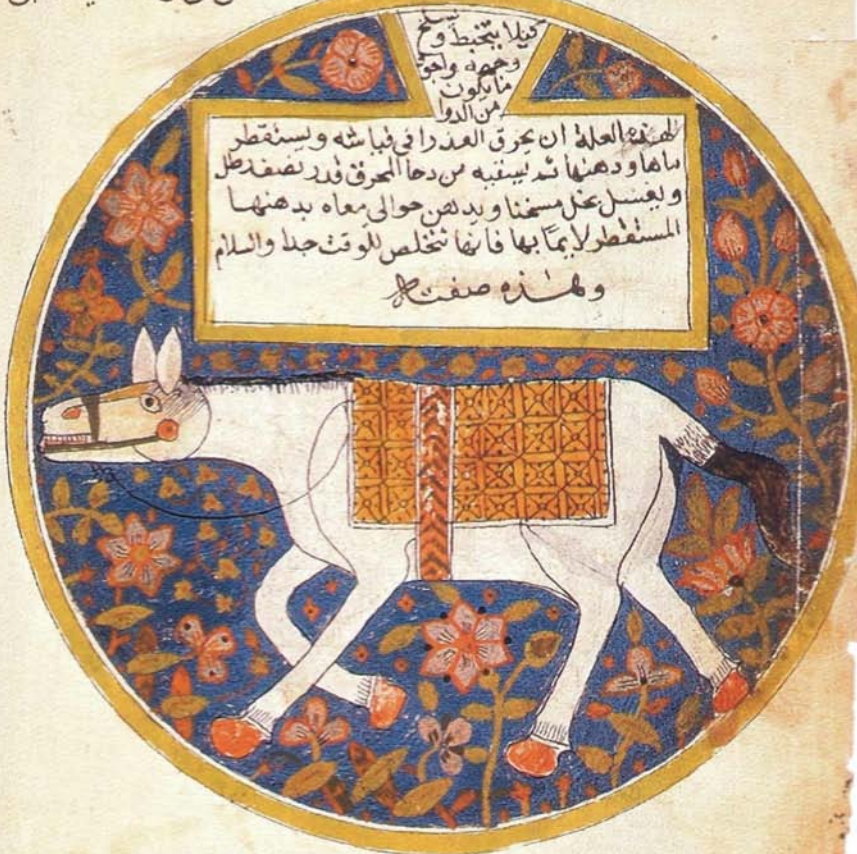 كيلا يتخبط ويسلخ
وجهه واجود
ما يكون
من الدوا
لهذه العلة ان يحرق العذرا في قباشه ويستقطر
ماها ودهنها ثم يسقيه من دخا المحرق قدر نصف رطل
ويغسل بخل مسخنا ويدهن حوالي معاه بدهنها
المستقطر لا بما بها فانها تتخلص للوقت جدا والسلام
وهذه صفته